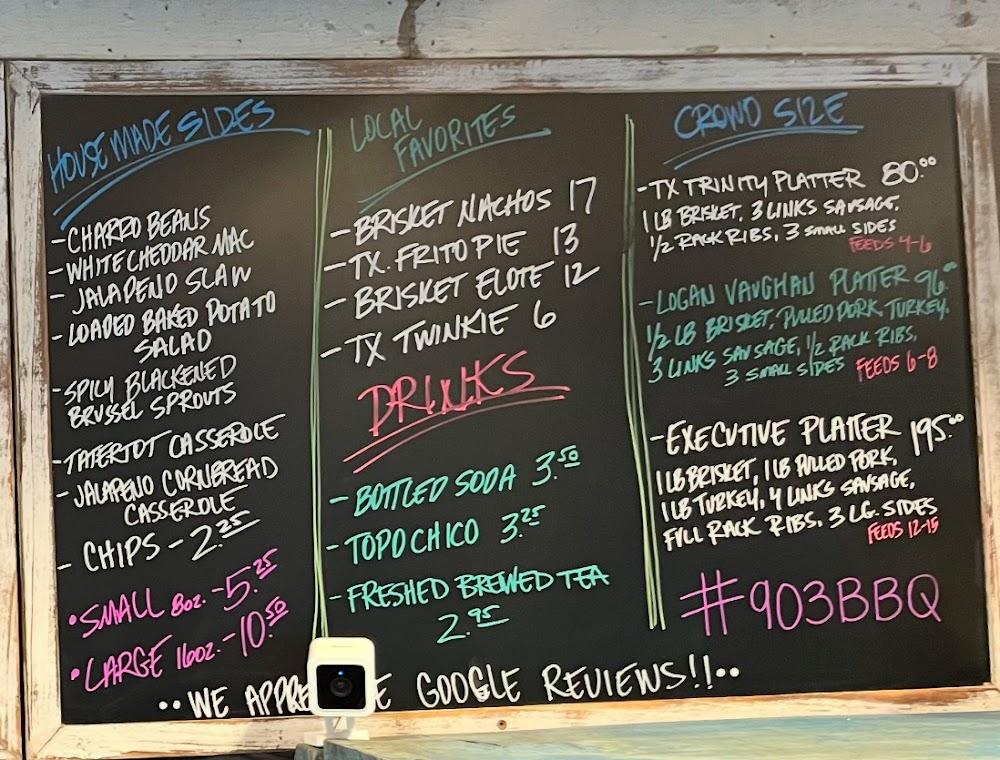 HOUSE MADE SIDES
- CHARRO BEANS
- WHITE CHEDDAR MAC
- JALAPENO SLAW
- LOADED BAKED POTATO
SALAD
- SPICY BLACKENED
BRUSSEL SPROUTS
- TATERTOT CASSEROLE
- JALAPENO CORNBREAD
CASSEROLE
- CHIPS - 2.25
• SMALL 8oz. - 5.25
• LARGE 16oz. - 10.50
LOCAL
FAVORITES
- BRISKET NACHOS 17
- TX. FRITO PIE 13
- BRISKET ELOTE 12
- TX TWINKIE 6
DRINKS
- BOTTLED SODA 3.50
- TOPO CHICO 3.25
- FRESHED BREWED TEA
2.95
CROWD SIZE
- TX TRINITY PLATTER 80.00
1 LB BRISKET, 3 LINKS SAUSAGE,
1/2 RACK RIBS, 3 SMALL SIDES
FEEDS 4-6
- LOGAN VAUGHAN PLATTER 96.00
1/2 LB BRISKET, PULLED PORK, TURKEY,
3 LINKS SAUSAGE, 1/2 RACK RIBS,
3 SMALL SIDES FEEDS 6-8
- EXECUTIVE PLATTER 195.00
1 LB BRISKET, 1 LB PULLED PORK,
1 LB TURKEY, 4 LINKS SAUSAGE,
FULL RACK RIBS, 3 LG. SIDES
FEEDS 12-15
#903BBQ
•• WE APPRE E GOOGLE REVIEWS!! ••